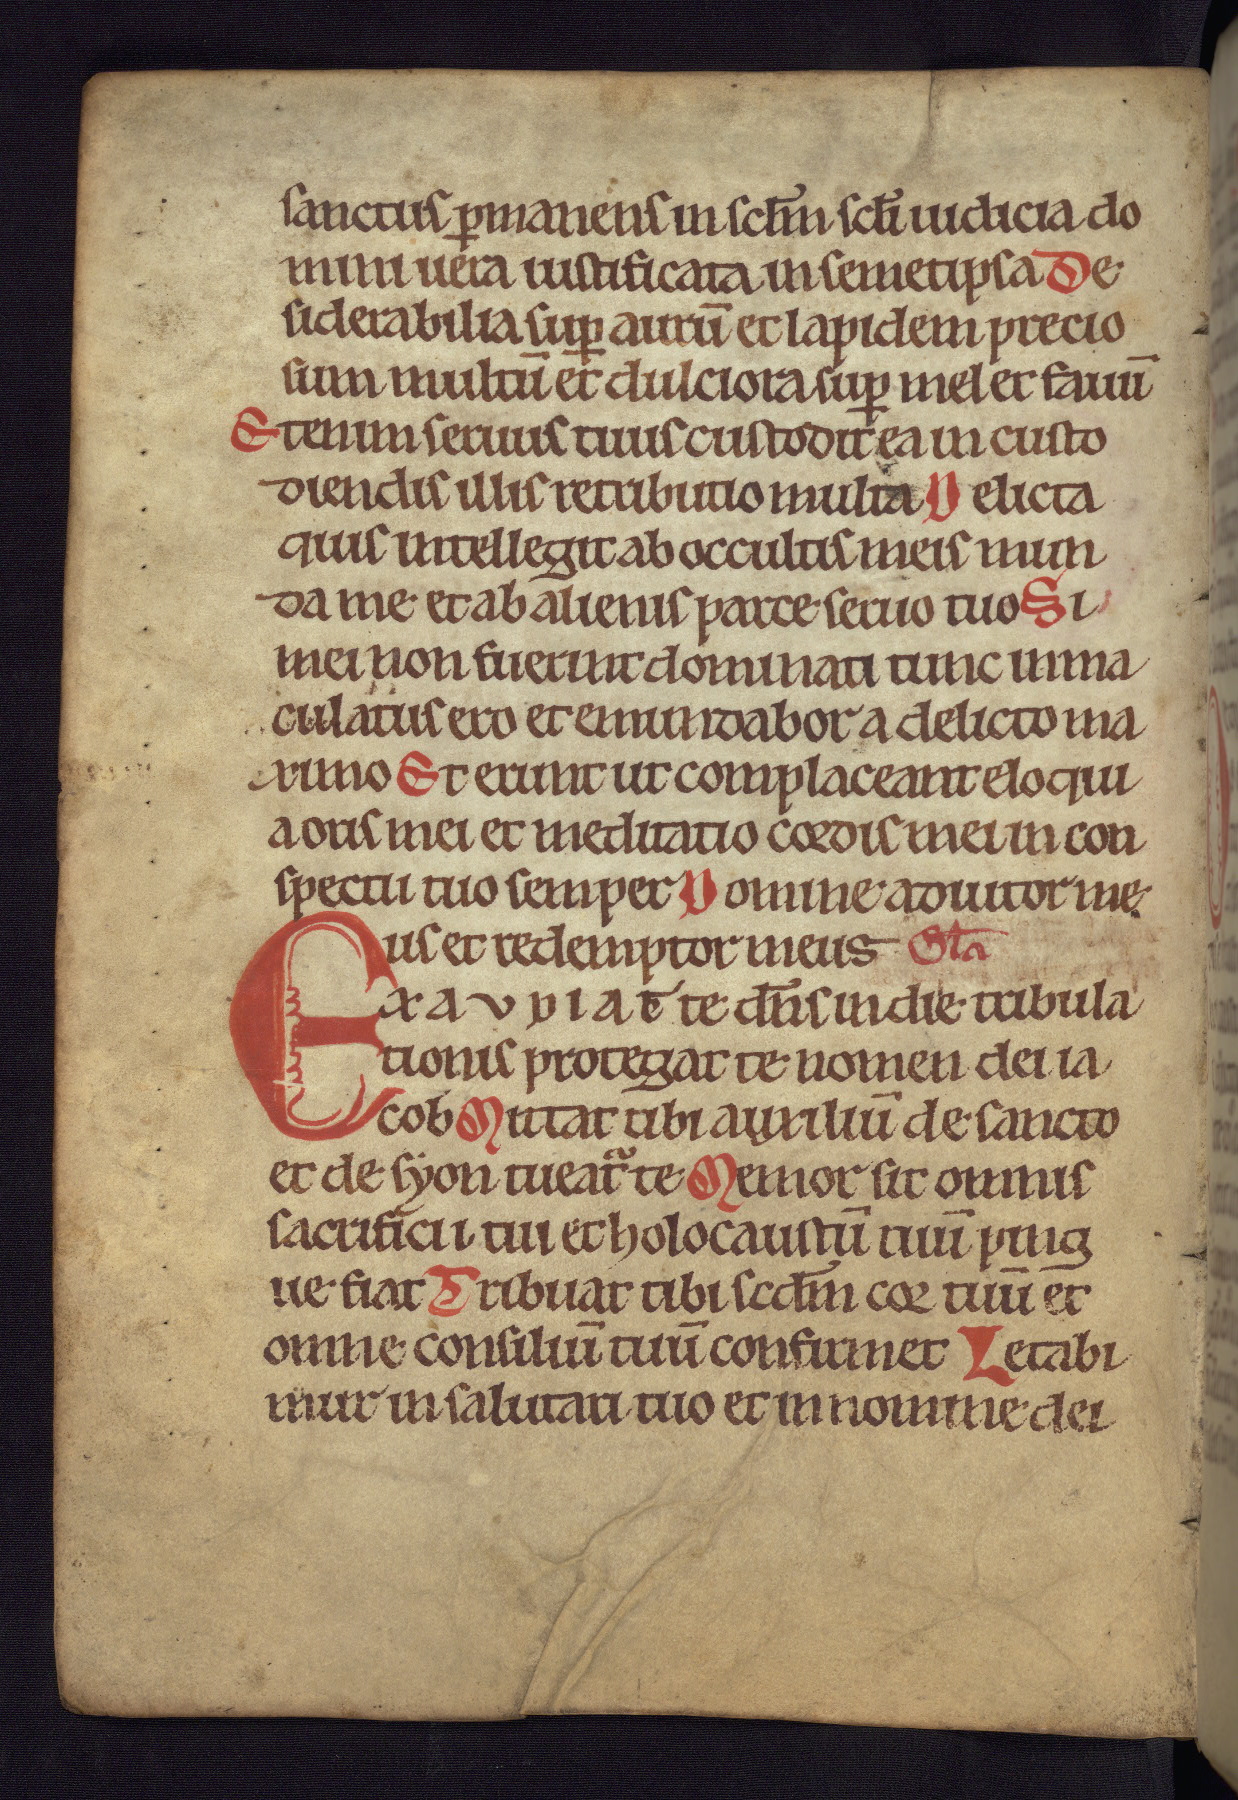 sanctus p̲manens in sclm̅ scli̅ iudicia do
mini uera iustificata in semetipsa De
siderabilia sup̲ auru̅ et lapidem precio
sum multu̅ et dulciora sup̲ mel et fauu̅
Etenim seruus tuus custodit ea in custo
diendis illis retributio multa Delicta
quis intellegit ab occultis meis mun
da me et ab alienis parce seruo tuo Si
mei non fuerint dominati tunc inma
culatus ero et emundabor a delicto ma
ximo Et erunt ut complaceant eloqui
a oris mei et meditatio cordis mei in con
spectu tuo semper Domine adiutor me
us et redemptor meus Gla̅
EXAVDIAT te dn̅s in die tribula
tionis protegat te nomen dei ia
cob Mittat tibi auxiliu̅ de sancto
et de syon tueat᷑ te Memor sit omnis
sacrificii tui et holocaustu̅ tuu̅ ping
ue fiat Tribuat tibi scdm̅ cor tuu̅ et
omne consiliu̅ tuu̅ confirmet Letabi
mur in salutari tuo et in nomine dei